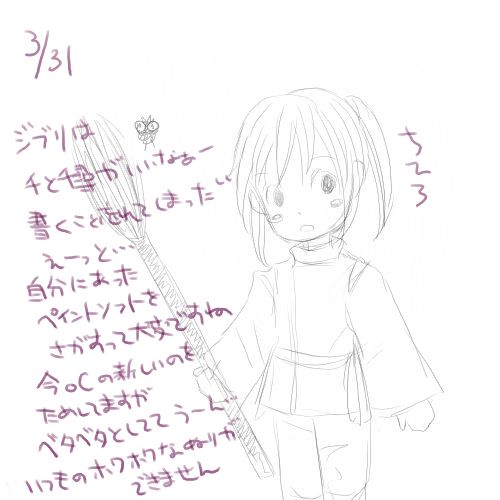 3/31
ジブリは
千と千尋がいいなぁー
書くこと忘れてしまった…
えーっと…
自分にあった
ペイントソフトを
さがすって大変ですね
今oCの新しいのを
ためしてますが
ベタベタとしててうーん
いつものホワホワなぬりが
できません
ちひろ